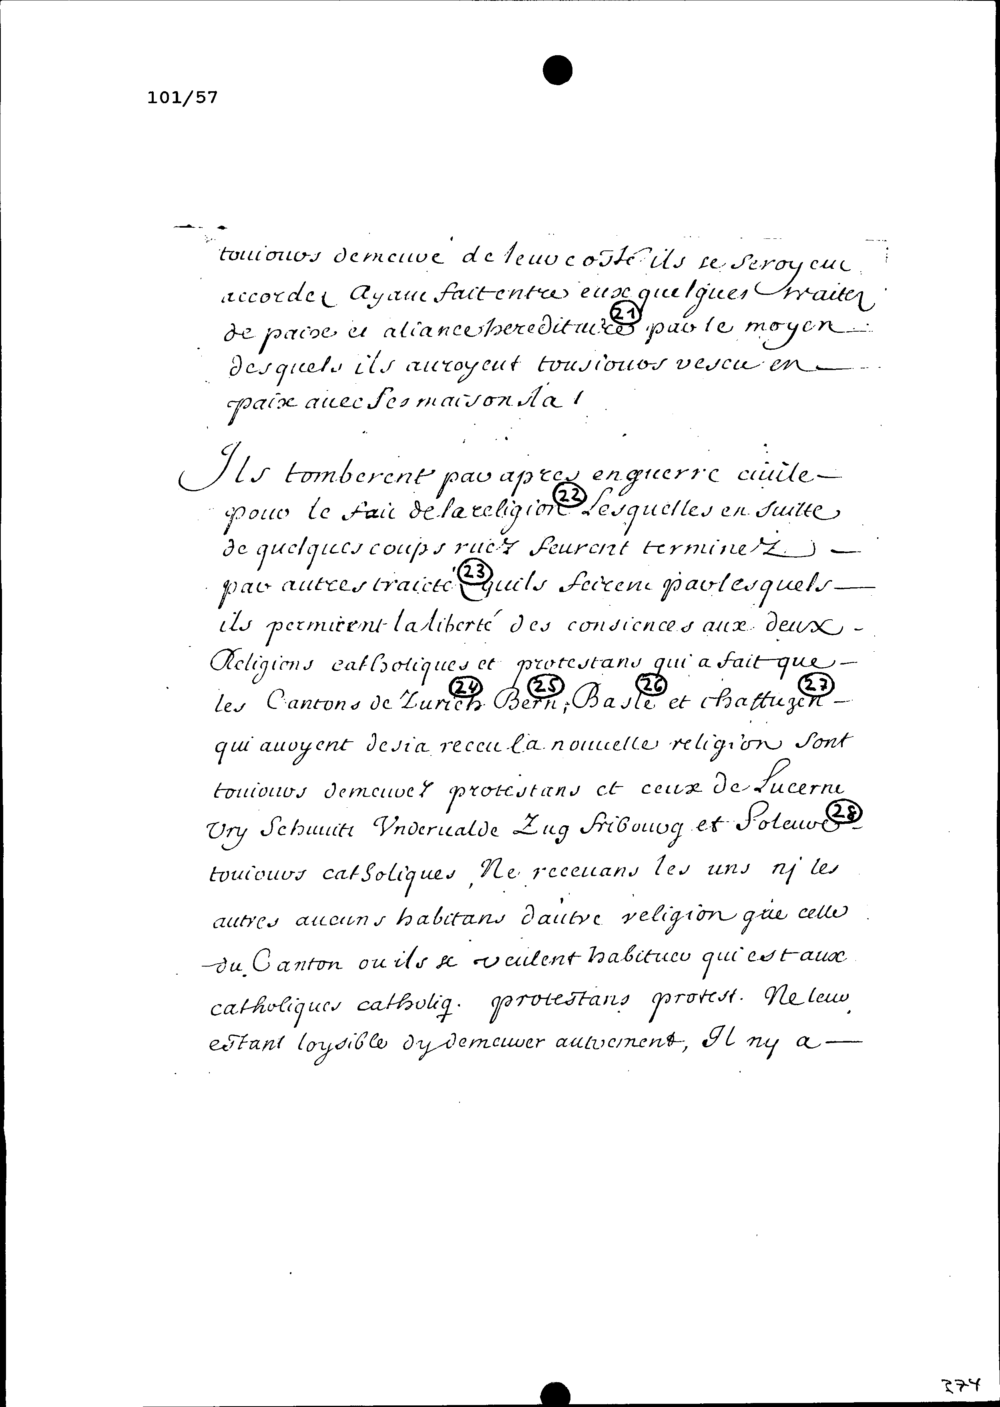 101/57
touiours demeuré de leur costé ils se seroyent
accordez Ayant fait entre eux quelques traitez
de paixe et aliance hereditaires (21) par le moyen
desquels ils auroyent tousiours vescu en
paix auec ses maisons la
Ils tomberent par apres en guerre ciuile
pour le fait de la religion (22) Lesquelles en suitte
de quelques coups ruez feurent terminez
par autres traicté (23) quils feirent par lesquels
ils permirent la liberté des consiences aux deux
Religions catholiques et protestans qui a fait que
les Cantons de Zurich (24) Bern (25), Basle (26) et chaffuzen (27)
qui auoyent desia receu la nouuelle religion sont
touiours demeurez protestans et ceux de Lucerne
Vry Schuuitz Vnderualde Zug fribourg et Soleure (28)
touiours catholiques, Ne receuans les uns nj les
autres aucuns habitans dautre religion que celle
du Canton ou ils se veulent habituer qui est aux
catholiques catholiq. protestans protest. Ne leur
estant loysible dy demeurer autrement, Il ny a
374